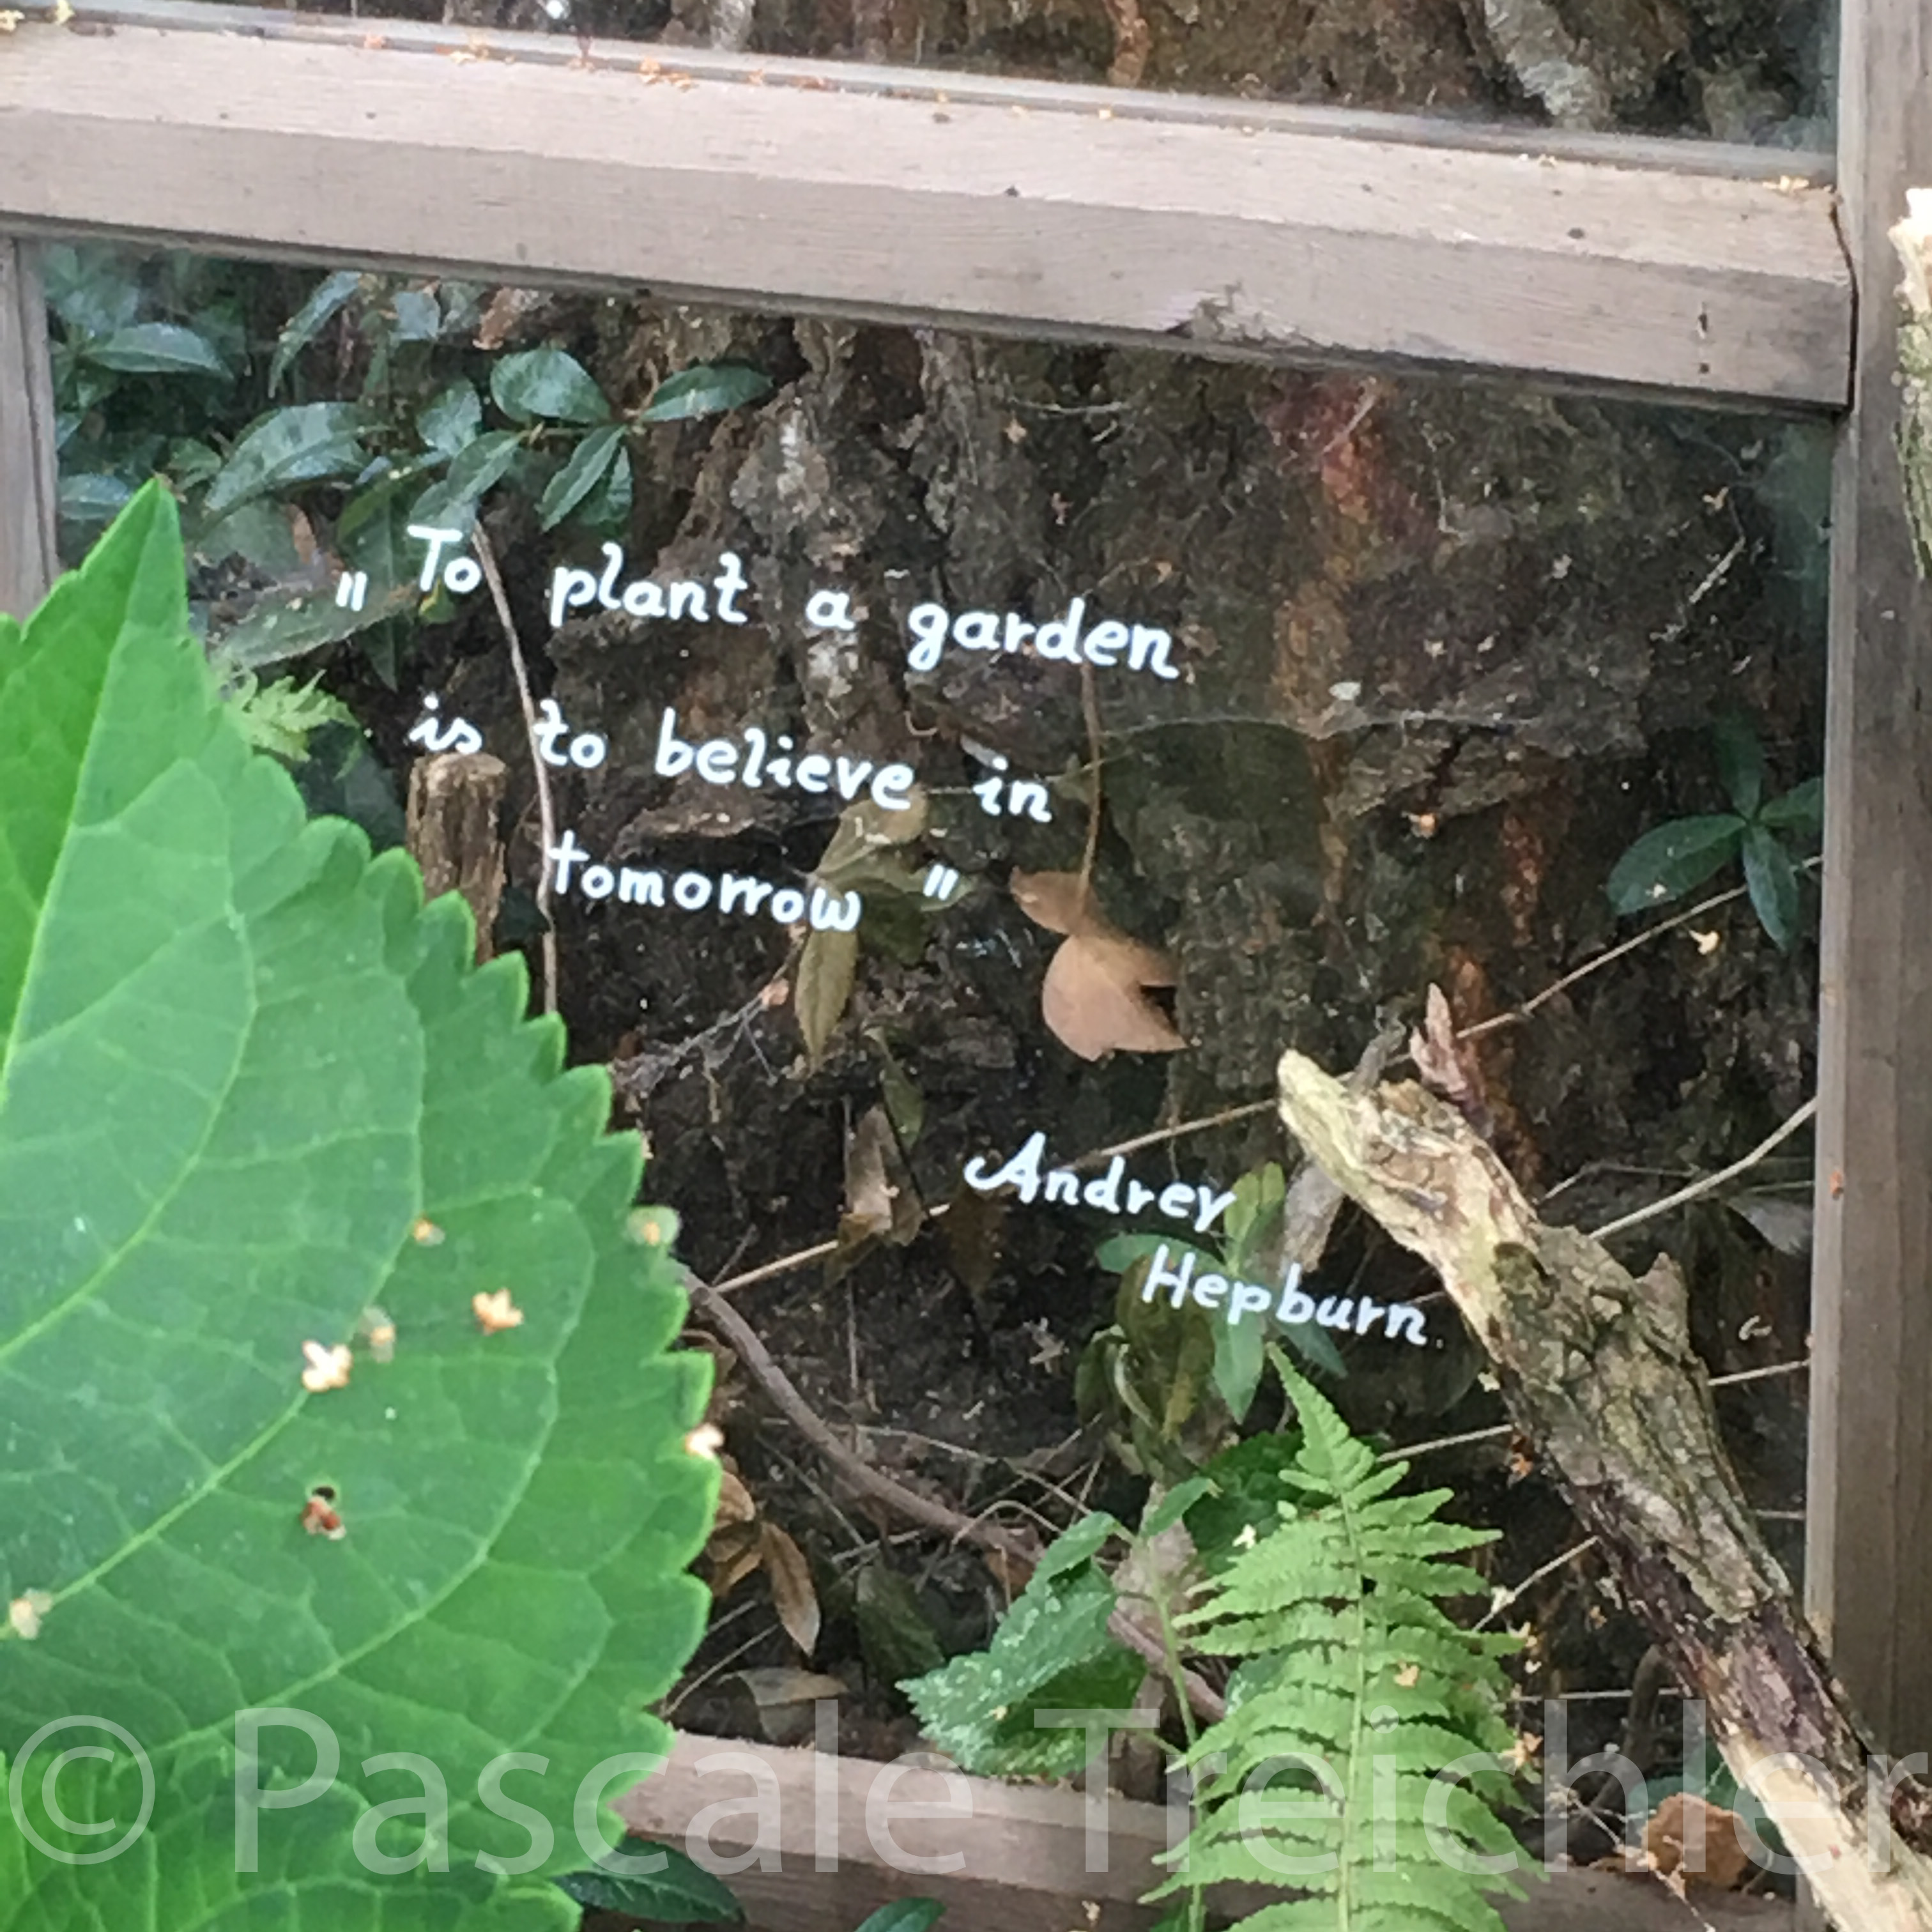 " To plant a garden
is to believe in
tomorrow "
Andrey
Hepburn.
© Pascale Treichler